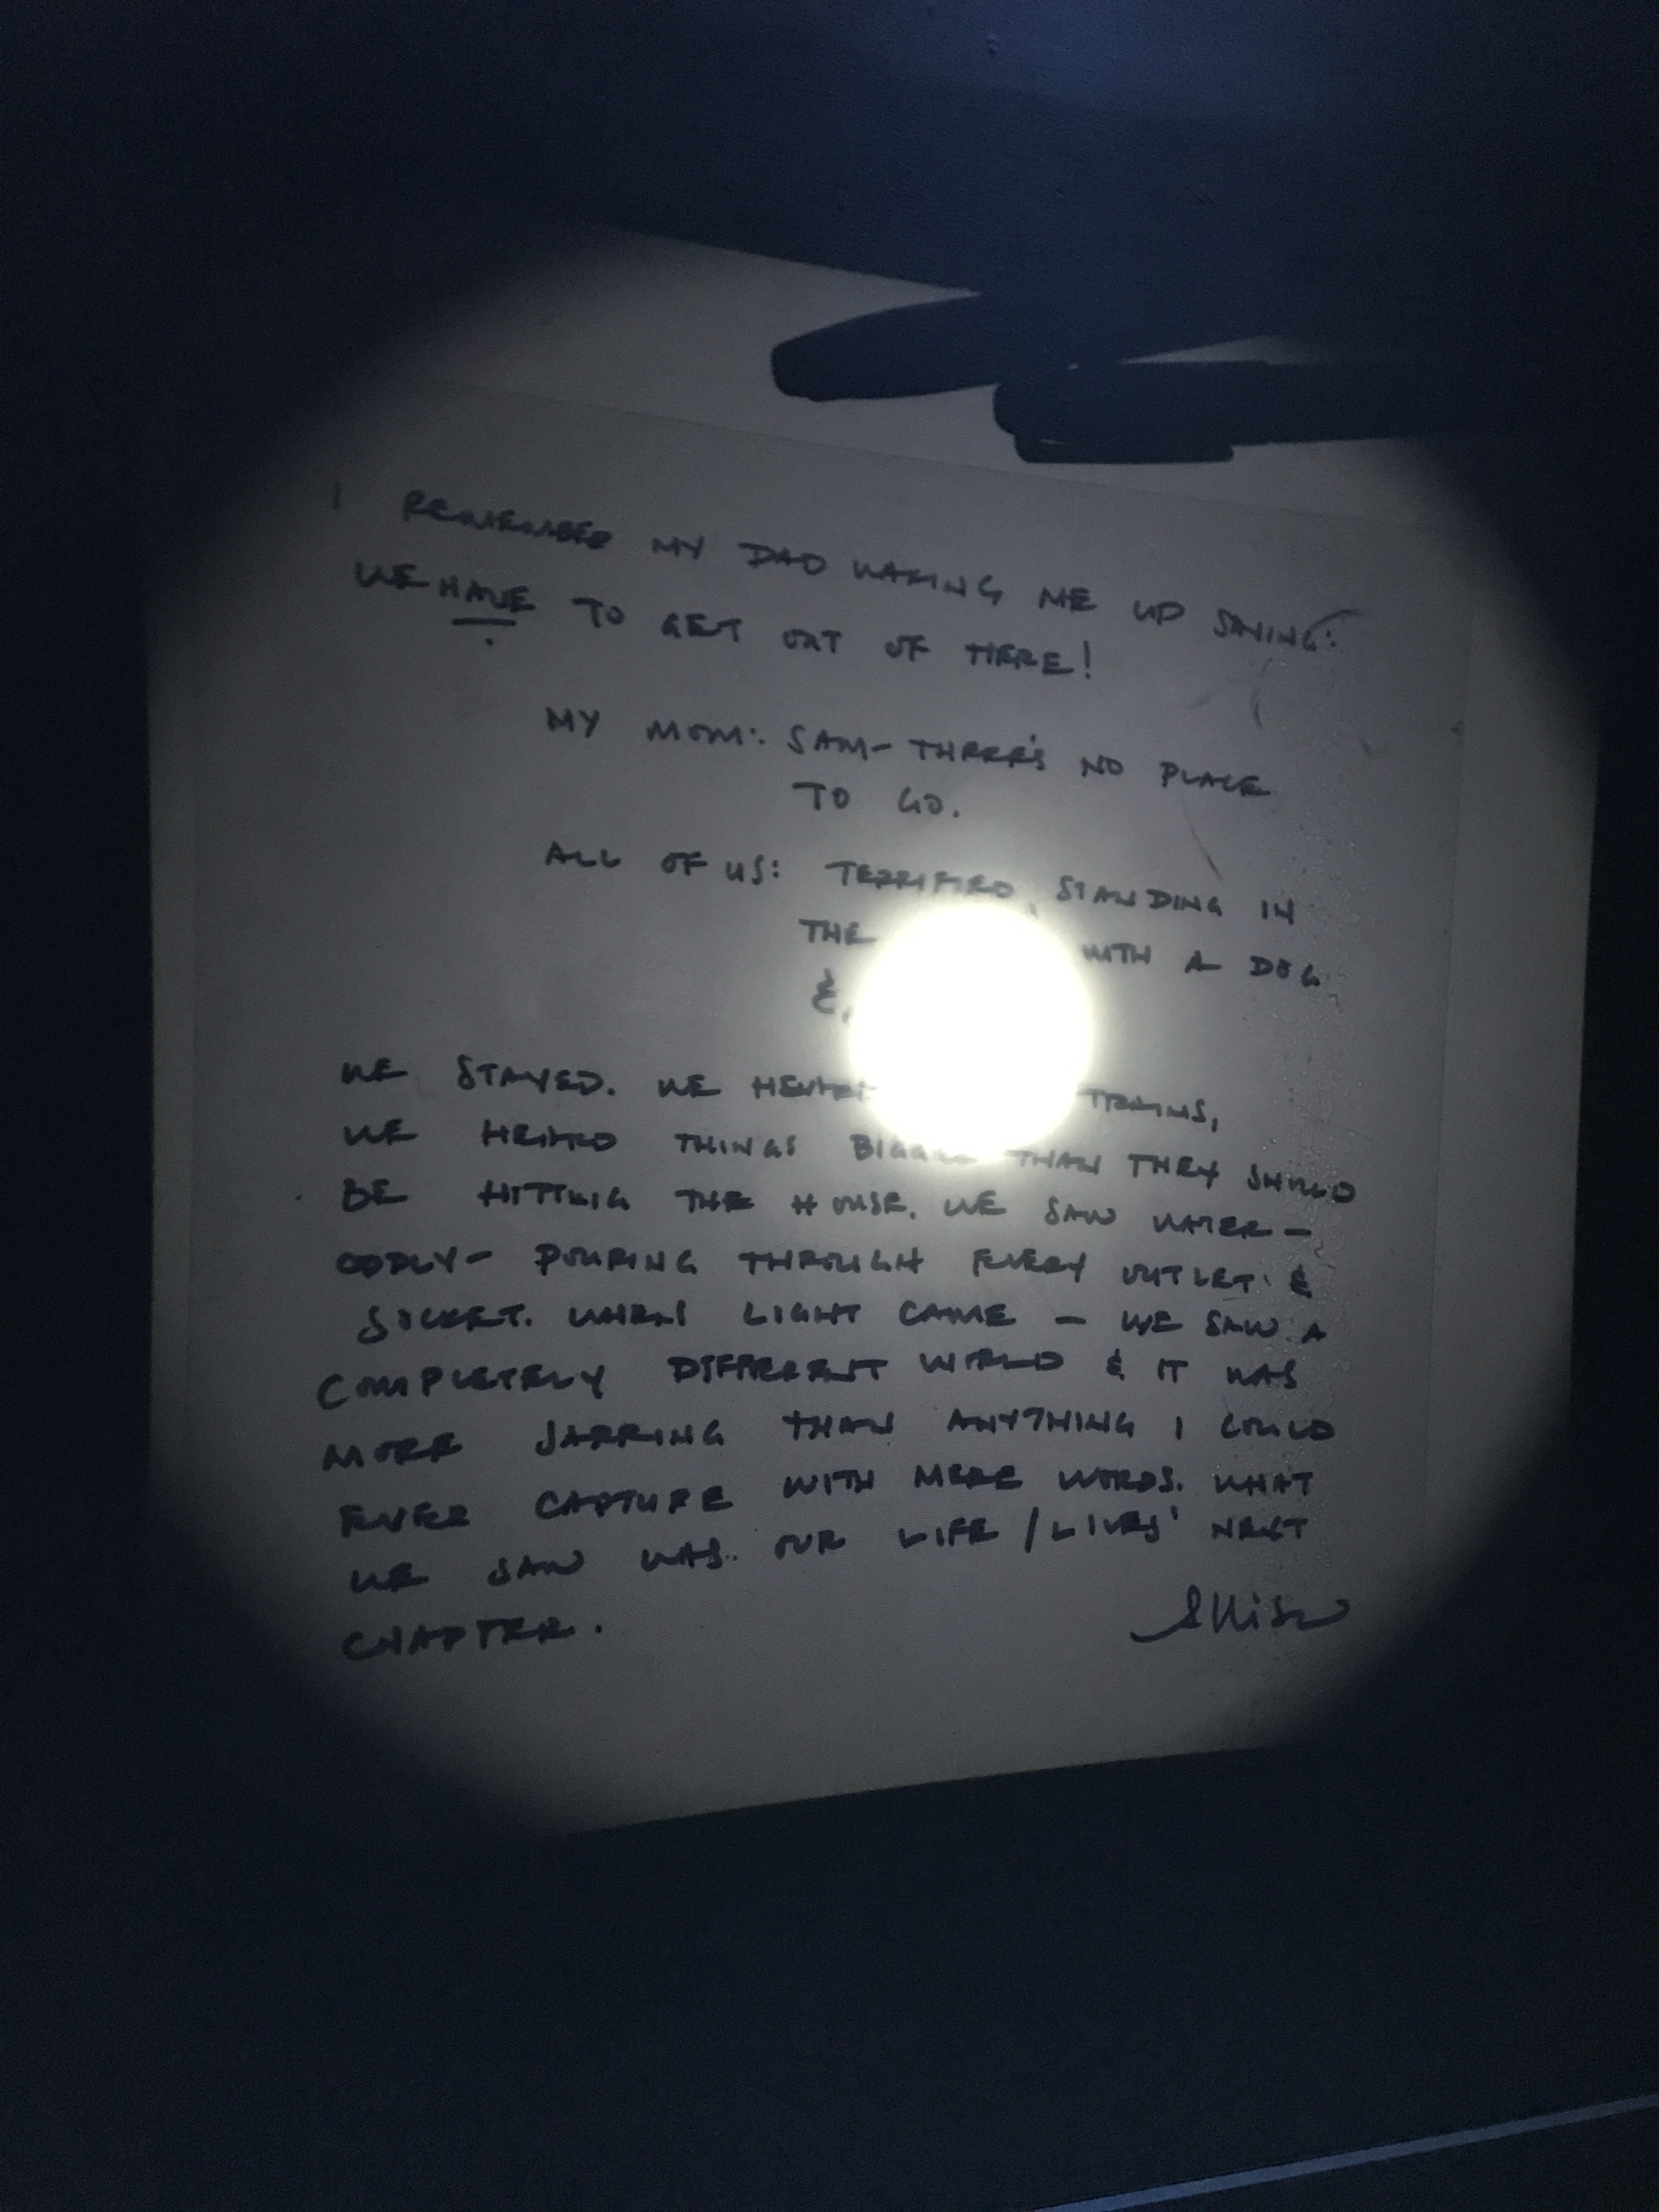 I REMEMBER MY DAD WAKING ME UP SAYING:
WE HAVE TO GET OUT OF HERE!
MY MOM: SAM- THERE'S NO PLACE
TO GO.
ALL OF US: TERRIFIED, STANDING IN
THE WITH A DOG
&
WE STAYED. WE HEARD TRAINS,
WE HEARD THINGS BIGGER THAN THEY SHOULD
BE HITTING THE HOUSE. WE SAW WATER-
ODDLY- POURING THROUGH EVERY OUTLET &
SOCKET. WHEN LIGHT CAME - WE SAW A
COMPLETELY DIFFERENT WORLD & IT WAS
MORE JARRING THAN ANYTHING I COULD
EVER CAPTURE WITH MERE WORDS. WHAT
WE SAW WAS.. OUR LIFE/LIVES' NEXT
CHAPTER.